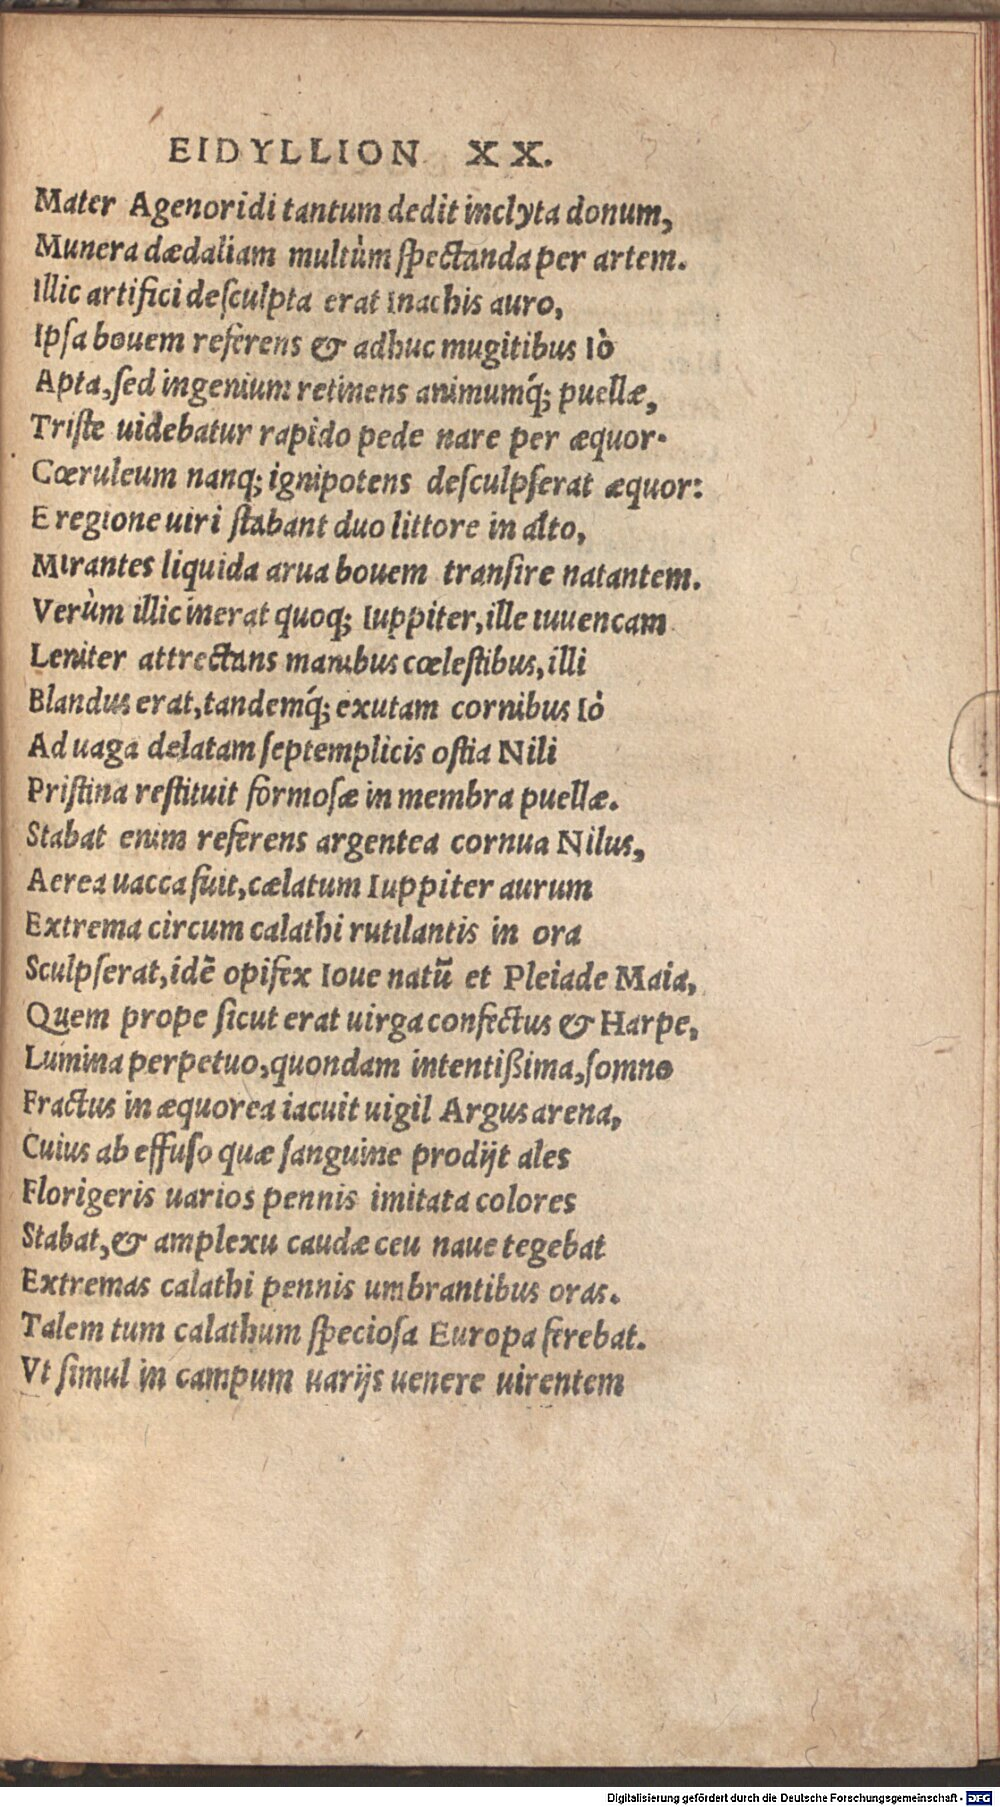 EIDYLLION XX.
Mater Agenoridi tantum dedit inclyta donum,
Munera dædaliam multùm spectanda per artem.
Illic artifici desculpta erat Inachis auro,
Ipsa bouem referens & adhuc mugitibus Iò
Apta, sed ingenium retinens animumq́; puellæ,
Triste uidebatur rapido pede nare per æquor.
Cœruleum nanq; ignipotens desculpserat æquor:
E regione uiri stabant duo littore in alto,
Mirantes liquida arua bouem transire natantem.
Verùm illic inerat quoq; Iuppiter, ille iuuencam
Leniter attrectans manibus cœlestibus, illi
Blandus erat, tandemq́; exutam cornibus Iò
Ad uaga delatam septemplicis ostia Nili
Pristina restituit formosæ in membra puellæ.
Stabat enim referens argentea cornua Nilus,
Aerea uacca fuit, cælatum Iuppiter aurum
Extrema circum calathi rutilantis in ora
Sculpserat, idē opifex Ioue natū et Pleiade Maia,
Quem prope sicut erat uirga confectus & Harpe,
Lumina perpetuo, quondam intentißima, somno
Fractus in æquorea iacuit uigil Argus arena,
Cuius ab effuso quæ sanguine prodijt ales
Florigeris uarios pennis imitata colores
Stabat, & amplexu caudæ ceu naue tegebat
Extremas calathi pennis umbrantibus oras.
Talem tum calathum speciosa Europa ferebat.
Vt simul in campum uarijs uenere uirentem
Digitalisierung gefördert durch die Deutsche Forschungsgemeinschaft - DFG